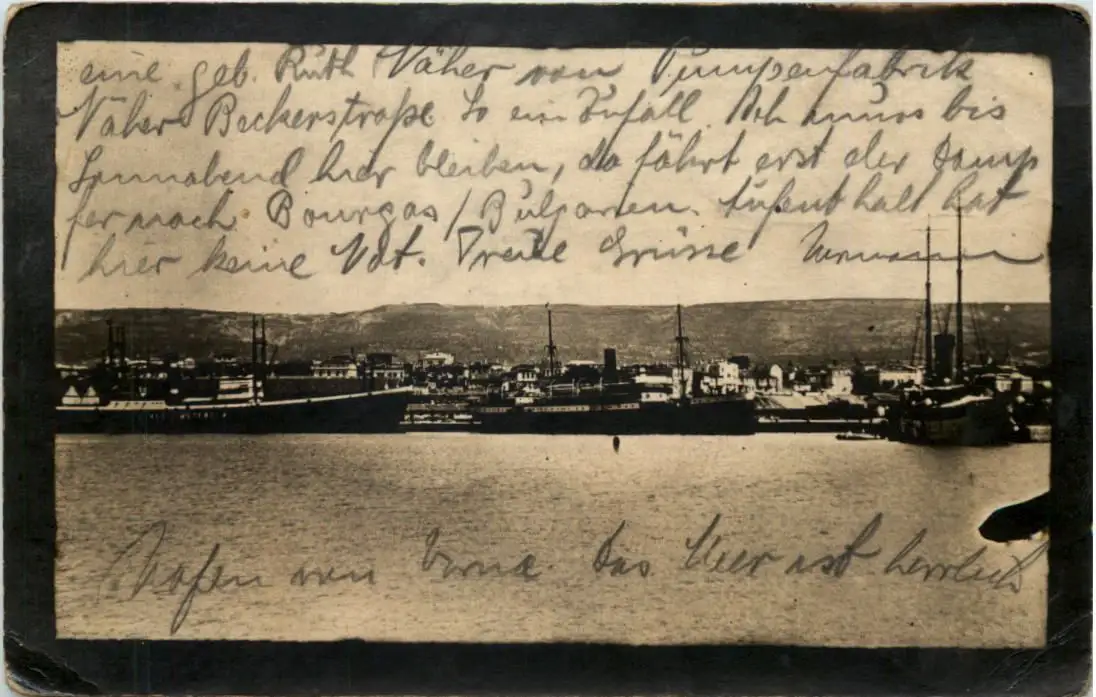 eine geb. Ruth Näher von Pumpenfabrik
Näher Beckerstraße. So ein Zufall. Ich muss bis
Sonnabend hier bleiben, da fährt erst der Damp
fer nach Bourgas / Bulgarien. Aufenthalt hat
hier keine Not. Treue Grüsse Hermann
Hafen von Varna. Das Meer ist herrlich